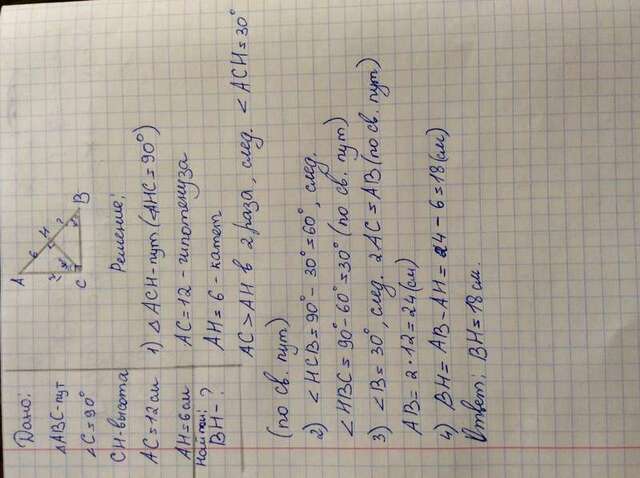 Дано:
△ABC-пут
∠C=90°
CH-высота
AC=12см
AH=6см
Найти:
BH-?
A
6
H
?
B
C
Решение:
1) △ACH-пут(∠AHC=90°)
AC=12-гипотенуза
AH=6-катет
AC>AH в 2 раза, след. <ACH=30°
(по св. пут)
2) <HCB=90°-30°=60°, след.
<HBC=90°-60°=30° (по св. пут)
3) <B=30°, след. 2AC=AB (по св. пут)
AB=2·12=24(см)
4) BH=AB-AH=24-6=18(см)
Ответ: BH=18см.